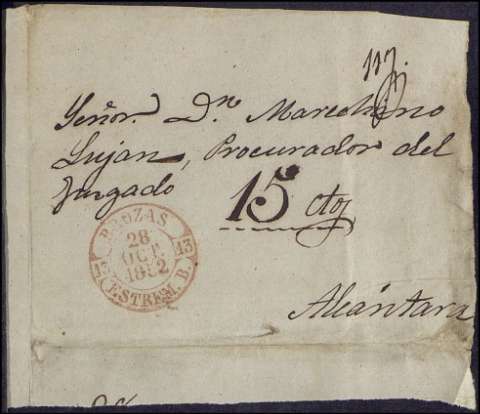 117.
Señor. Dn. Marcelino
Lujan, Procurador del
Juzgado
15 ctos
BROZAS
28
OCT.
1852
13 13
ESTREM. B.
Alcántara